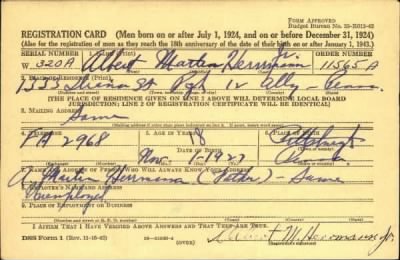 FORM APPROVED
Budget Bureau No. 33-R012-42
REGISTRATION CARD (Men born on or after July 1, 1924, and on or before December 31, 1924)
(Also for the registration of men as they reach the 18th anniversary of the date of their birth on or after January 1, 1943.)
SERIAL NUMBER
ORDER NUMBER
W 320A Albert Martin Herrmann Jr. 11565A
2. PLACE OF RESIDENCE
Pgh Penna.
[THE PLACE OF RESIDENCE GIVEN ON LINE 2 ABOVE WILL DETERMINE LOCAL BOARD
JURISDICTION; LINE 2 OF REGISTRATION CERTIFICATE WILL BE IDENTICAL]
3. MAILING ADDRESS
Same
4. TELEPHONE
5. AGE IN YEARS
6. PLACE OF BIRTH
2968
Pittsburgh
DATE OF BIRTH
Nov. 1927
Penna
7. NAME AND ADDRESS OF PERSON WHO WILL ALWAYS KNOW YOUR ADDRESS
A. Martin Herrmann (Father) - Same
8. EMPLOYER'S NAME AND ADDRESS
Unemployed
9. PLACE OF EMPLOYMENT OR BUSINESS
I AFFIRM THAT I HAVE VERIFIED ABOVE ANSWERS AND THAT THEY ARE TRUE.
DSS Form 1 (Rev. 11-16-42)
(OVER)
Albert M. Herrmann Jr.